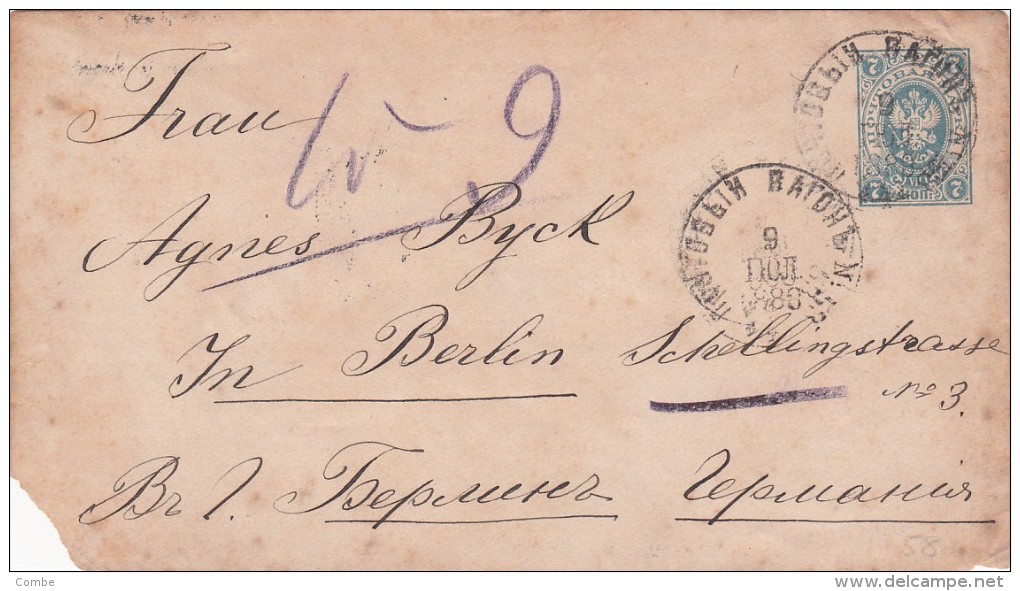 Frau
W 9
Agnes Byck
In Berlin Schellingstrasse
No 3.
Въ Г. Берлинъ Германія
ПОЧТОВЫЙ ВАГОНЪ N
9
ІЮЛ
ПОЧТОВЫЙ ВАГОНЪ
ПОЧТОВАЯ
7 7 7 7
КОП.
58
Combe
www.delcampe.net